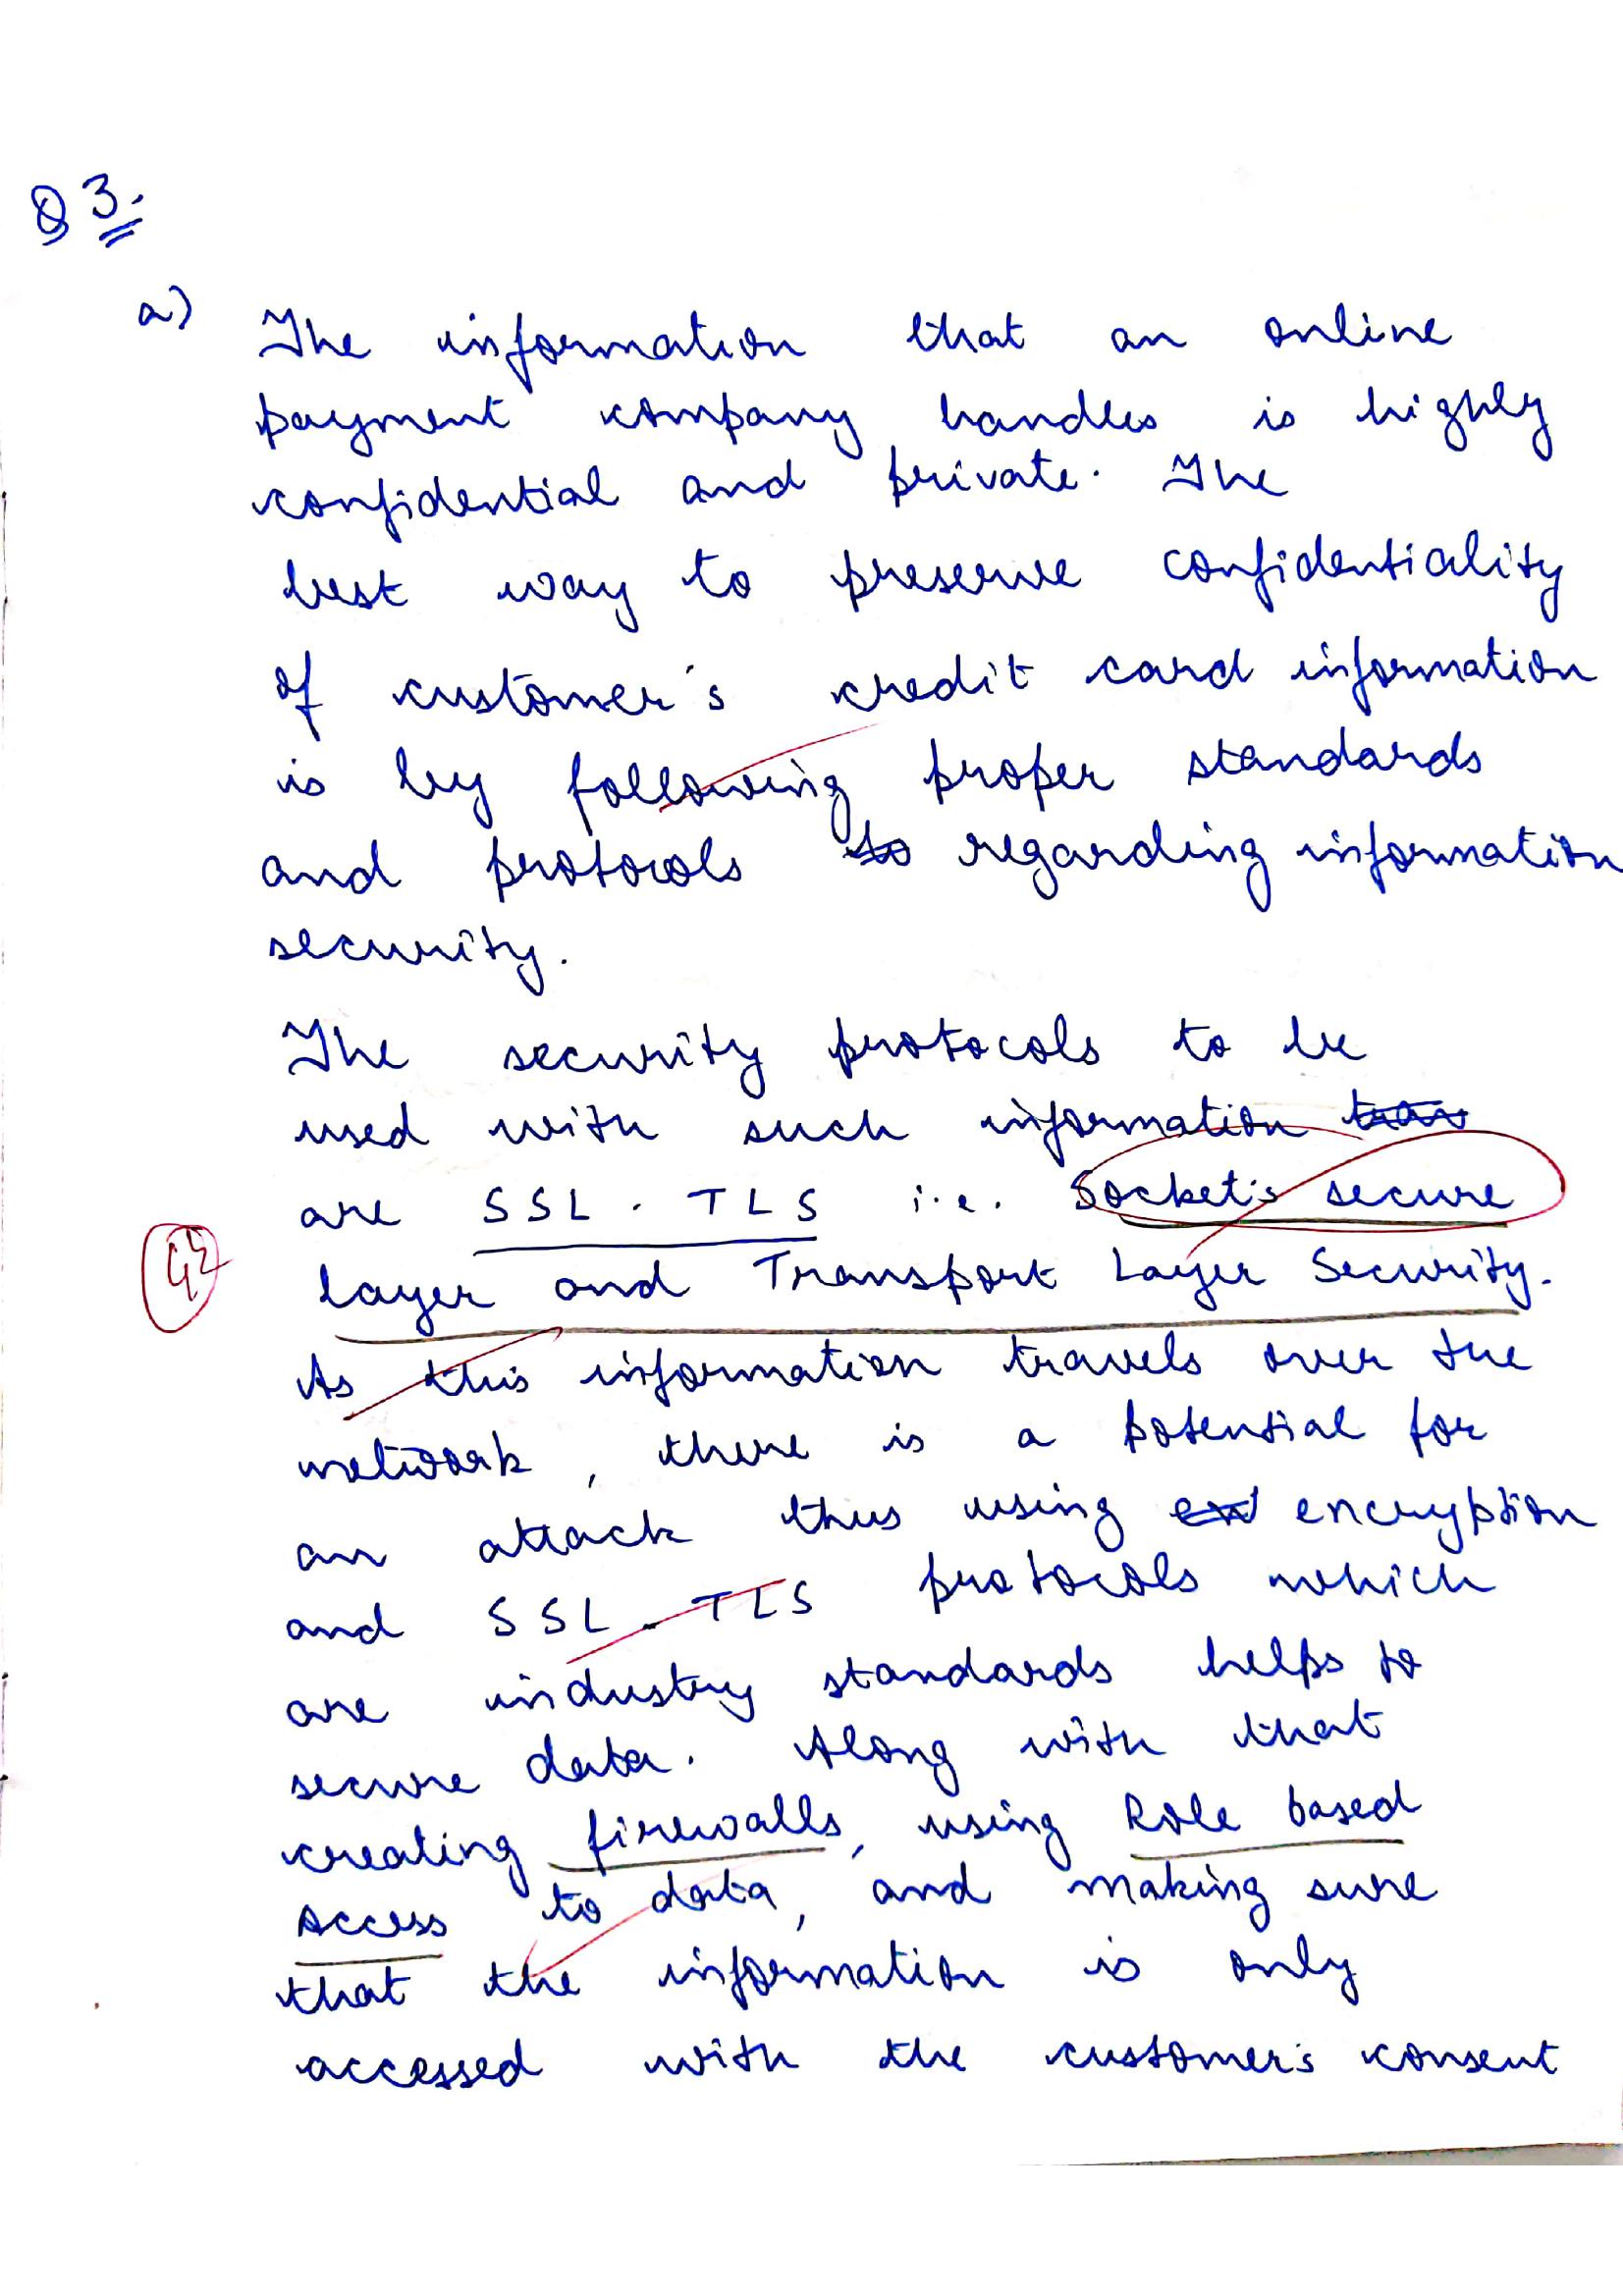 Q 3.
a) The information that an online
payment company handles is highly
confidential and private. The
best way to preserve confidentiality
of customer's credit card information
is by following proper standards
and protocols to regarding information
security.
The security protocols to be
used with such information
are SSL - TLS i.e. Socket's secure
layer and Transport Layer Security.
As this information travels over the
network, there is a potential for
an attack thus using encryption
and SSL - TLS protocols which
are industry standards helps to
secure data. Along with that
creating firewalls, using Role based
Access to data, and making sure
that the information is only
accessed with the customer's consent